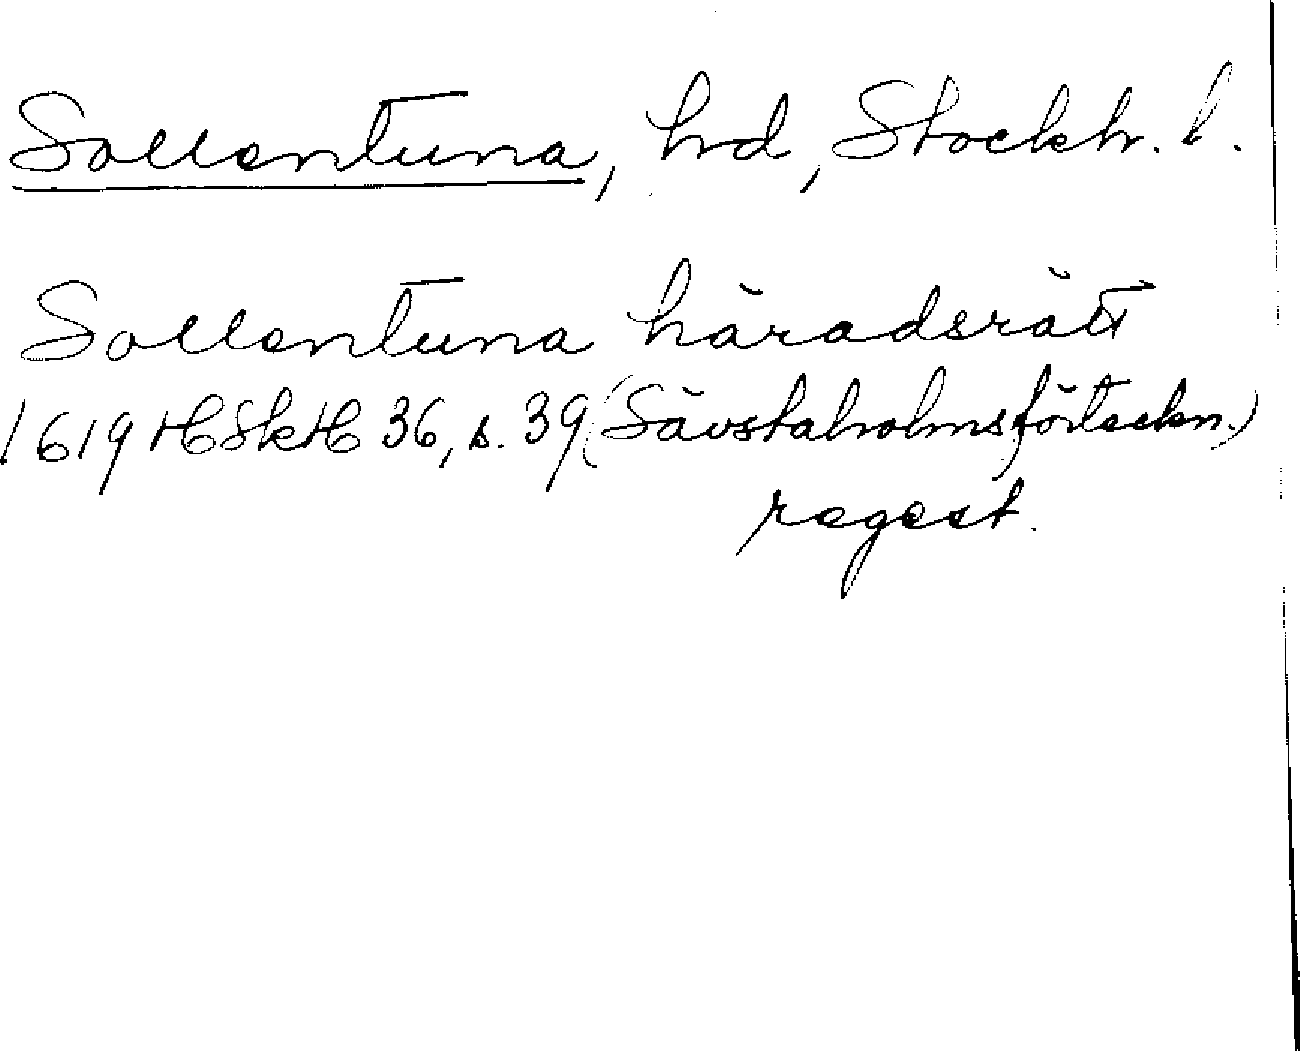 Sollentuna, hd, Stockh. l.
Sollentuna häradsrätt
1619 HSkH 36, s. 39 (Sävstaholmsförteckn.)
regest.